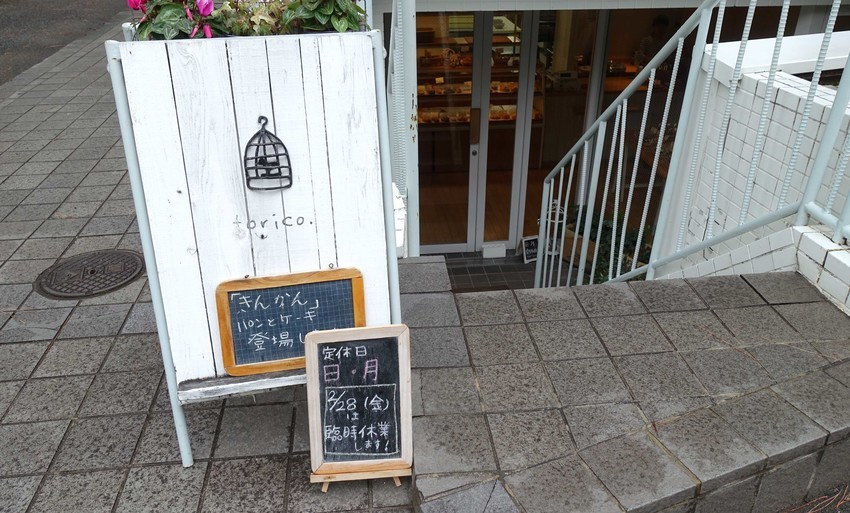 torico.
「きんなん」
パンとケーキ
登場し
定休日
日・月
2/28(金)
は
臨時休業
します!